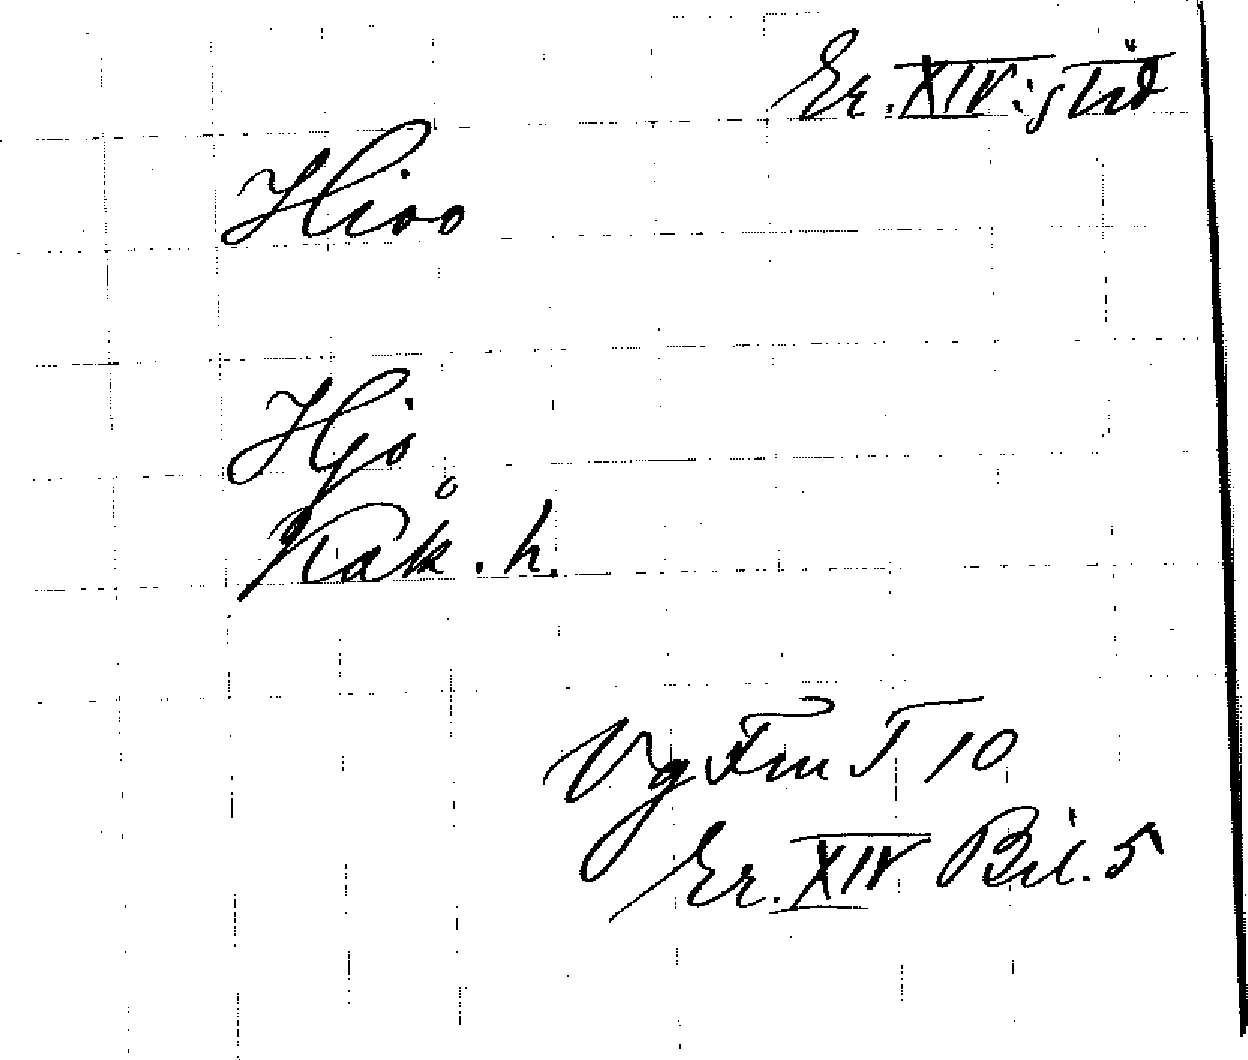 Er. XIV: s tid
Hioo
Hjo
Kåk. h.
Vg Fm T 10
Er. XIV Bil. 5